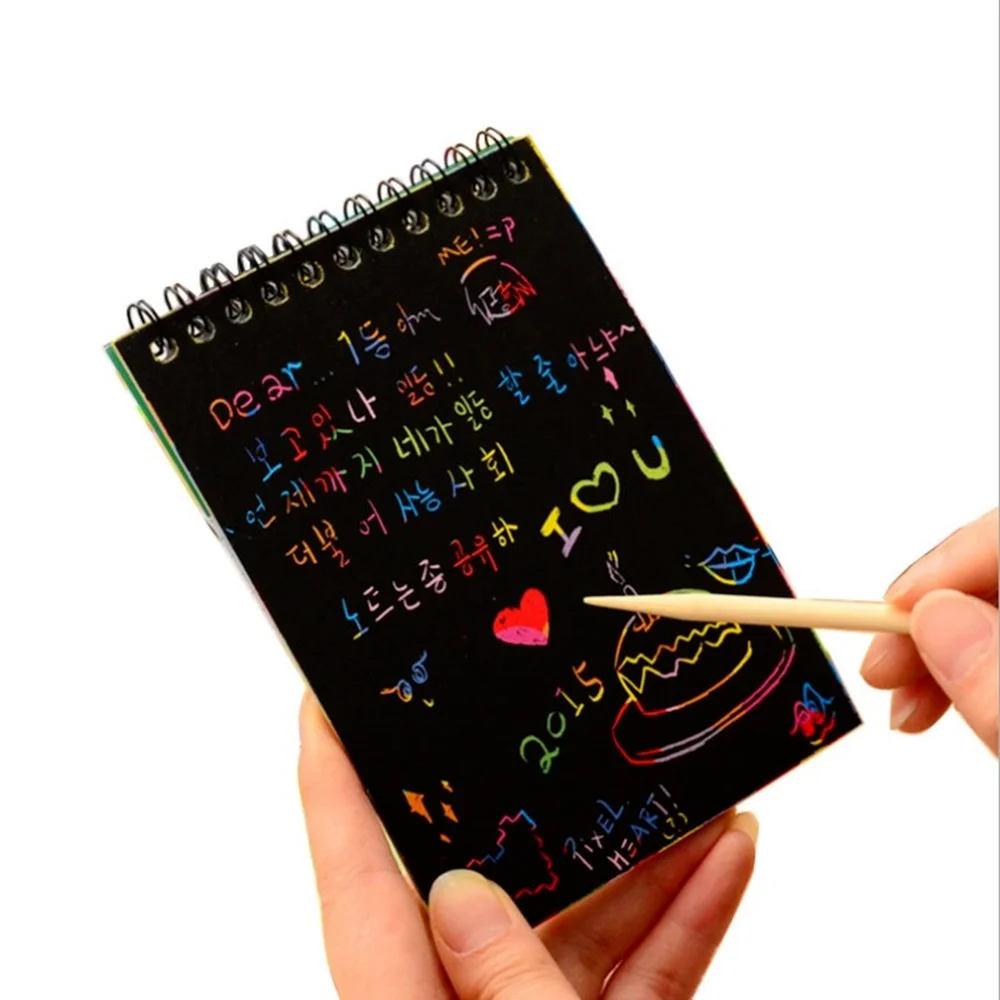 ME! =P
Dear... 1등
보고있나 일등!!
언제까지 네가 일등 할 줄 아냐~
더불어 사는 사회
I U
노트는 좀 공유하
2015
PIXEL
HEART!
(?)